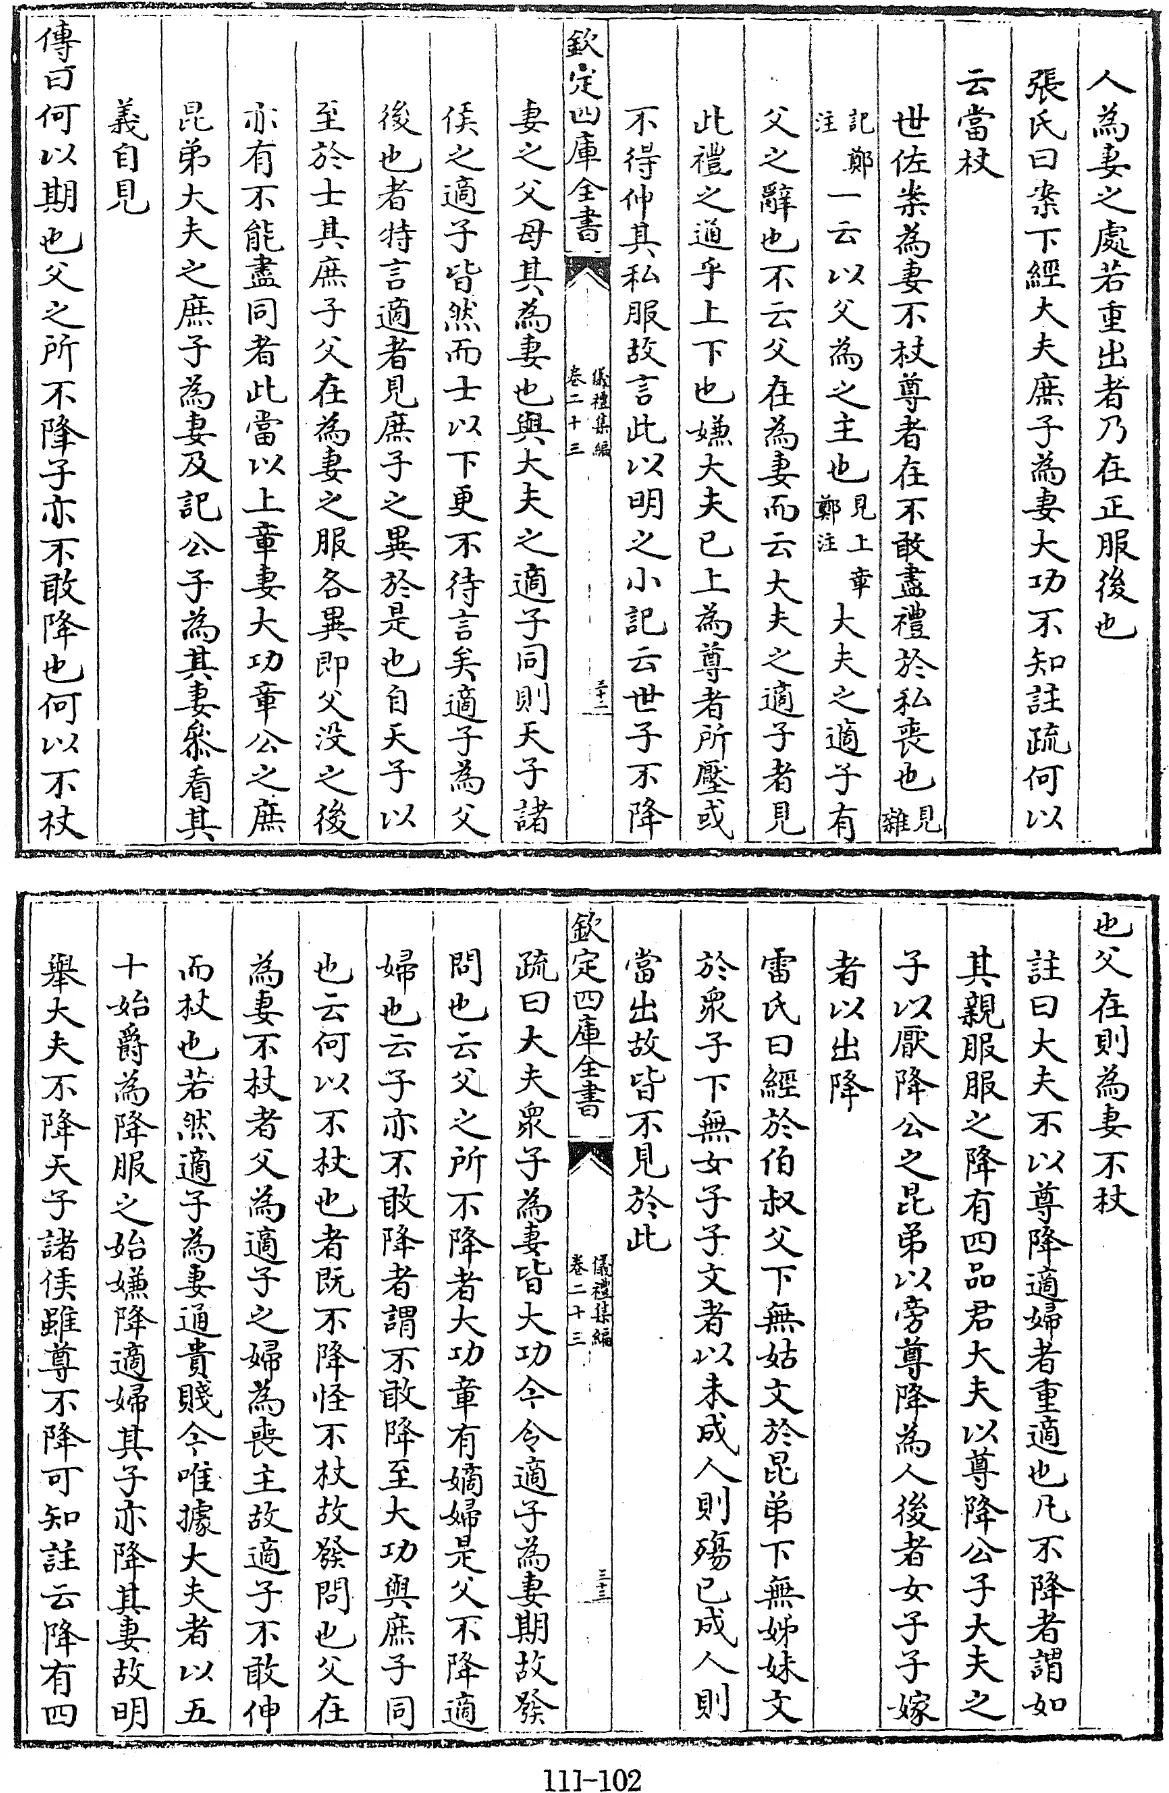 人為妻之處若重出者乃在正服後也
張氏曰案下經大夫庶子為妻大功不知註疏何以
云當杖
世佐案為妻不杖尊者在不敢盡禮於私喪也見雜
記鄭注一云以父為之主也見上章鄭注大夫之適子有
父之辭也不云父在為妻而云大夫之適子者見
此禮之通乎上下也嫌大夫已上為尊者所壓或
不得伸其私服故言此以明之小記云世子不降
欽定四庫全書
儀禮集編
卷二十三
三十二
妻之父母其為妻也與大夫之適子同則天子諸
侯之適子皆然而士以下更不待言矣適子為父
後也者特言適者見庶子之異於是也自天子以
至於士其庶子父在為妻之服各異即父没之後
亦有不能盡同者此當以上章妻大功章公之庶
昆弟大夫之庶子為妻及記公子為其妻叅看其
義自見
傳曰何以期也父之所不降子亦不敢降也何以不杖
也父在則為妻不杖
註曰大夫不以尊降適婦者重適也凡不降者謂如
其親服服之降有四品君大夫以尊降公子大夫之
子以厭降公之昆弟以旁尊降為人後者女子子嫁
者以出降
雷氏曰經於伯叔父下無姑文於昆弟下無姊妹文
於衆子下無女子子文者以未成人則殤已成人則
當出故皆不見於此
欽定四庫全書
儀禮集編
卷二十三
三十三
疏曰大夫衆子為妻皆大功今令適子為妻期故發
問也云父之所不降者大功章有嫡婦是父不降適
婦也云子亦不敢降者謂不敢降至大功與庶子同
也云何以不杖也者既不降怪不杖故發問也父在
為妻不杖者父為適子之婦為喪主故適子不敢伸
而杖也若然適子為妻通貴賤今唯據大夫者以五
十始爵為降服之始嫌降適婦其子亦降其妻故明
舉大夫不降天子諸侯雖尊不降可知註云降有四
111-102